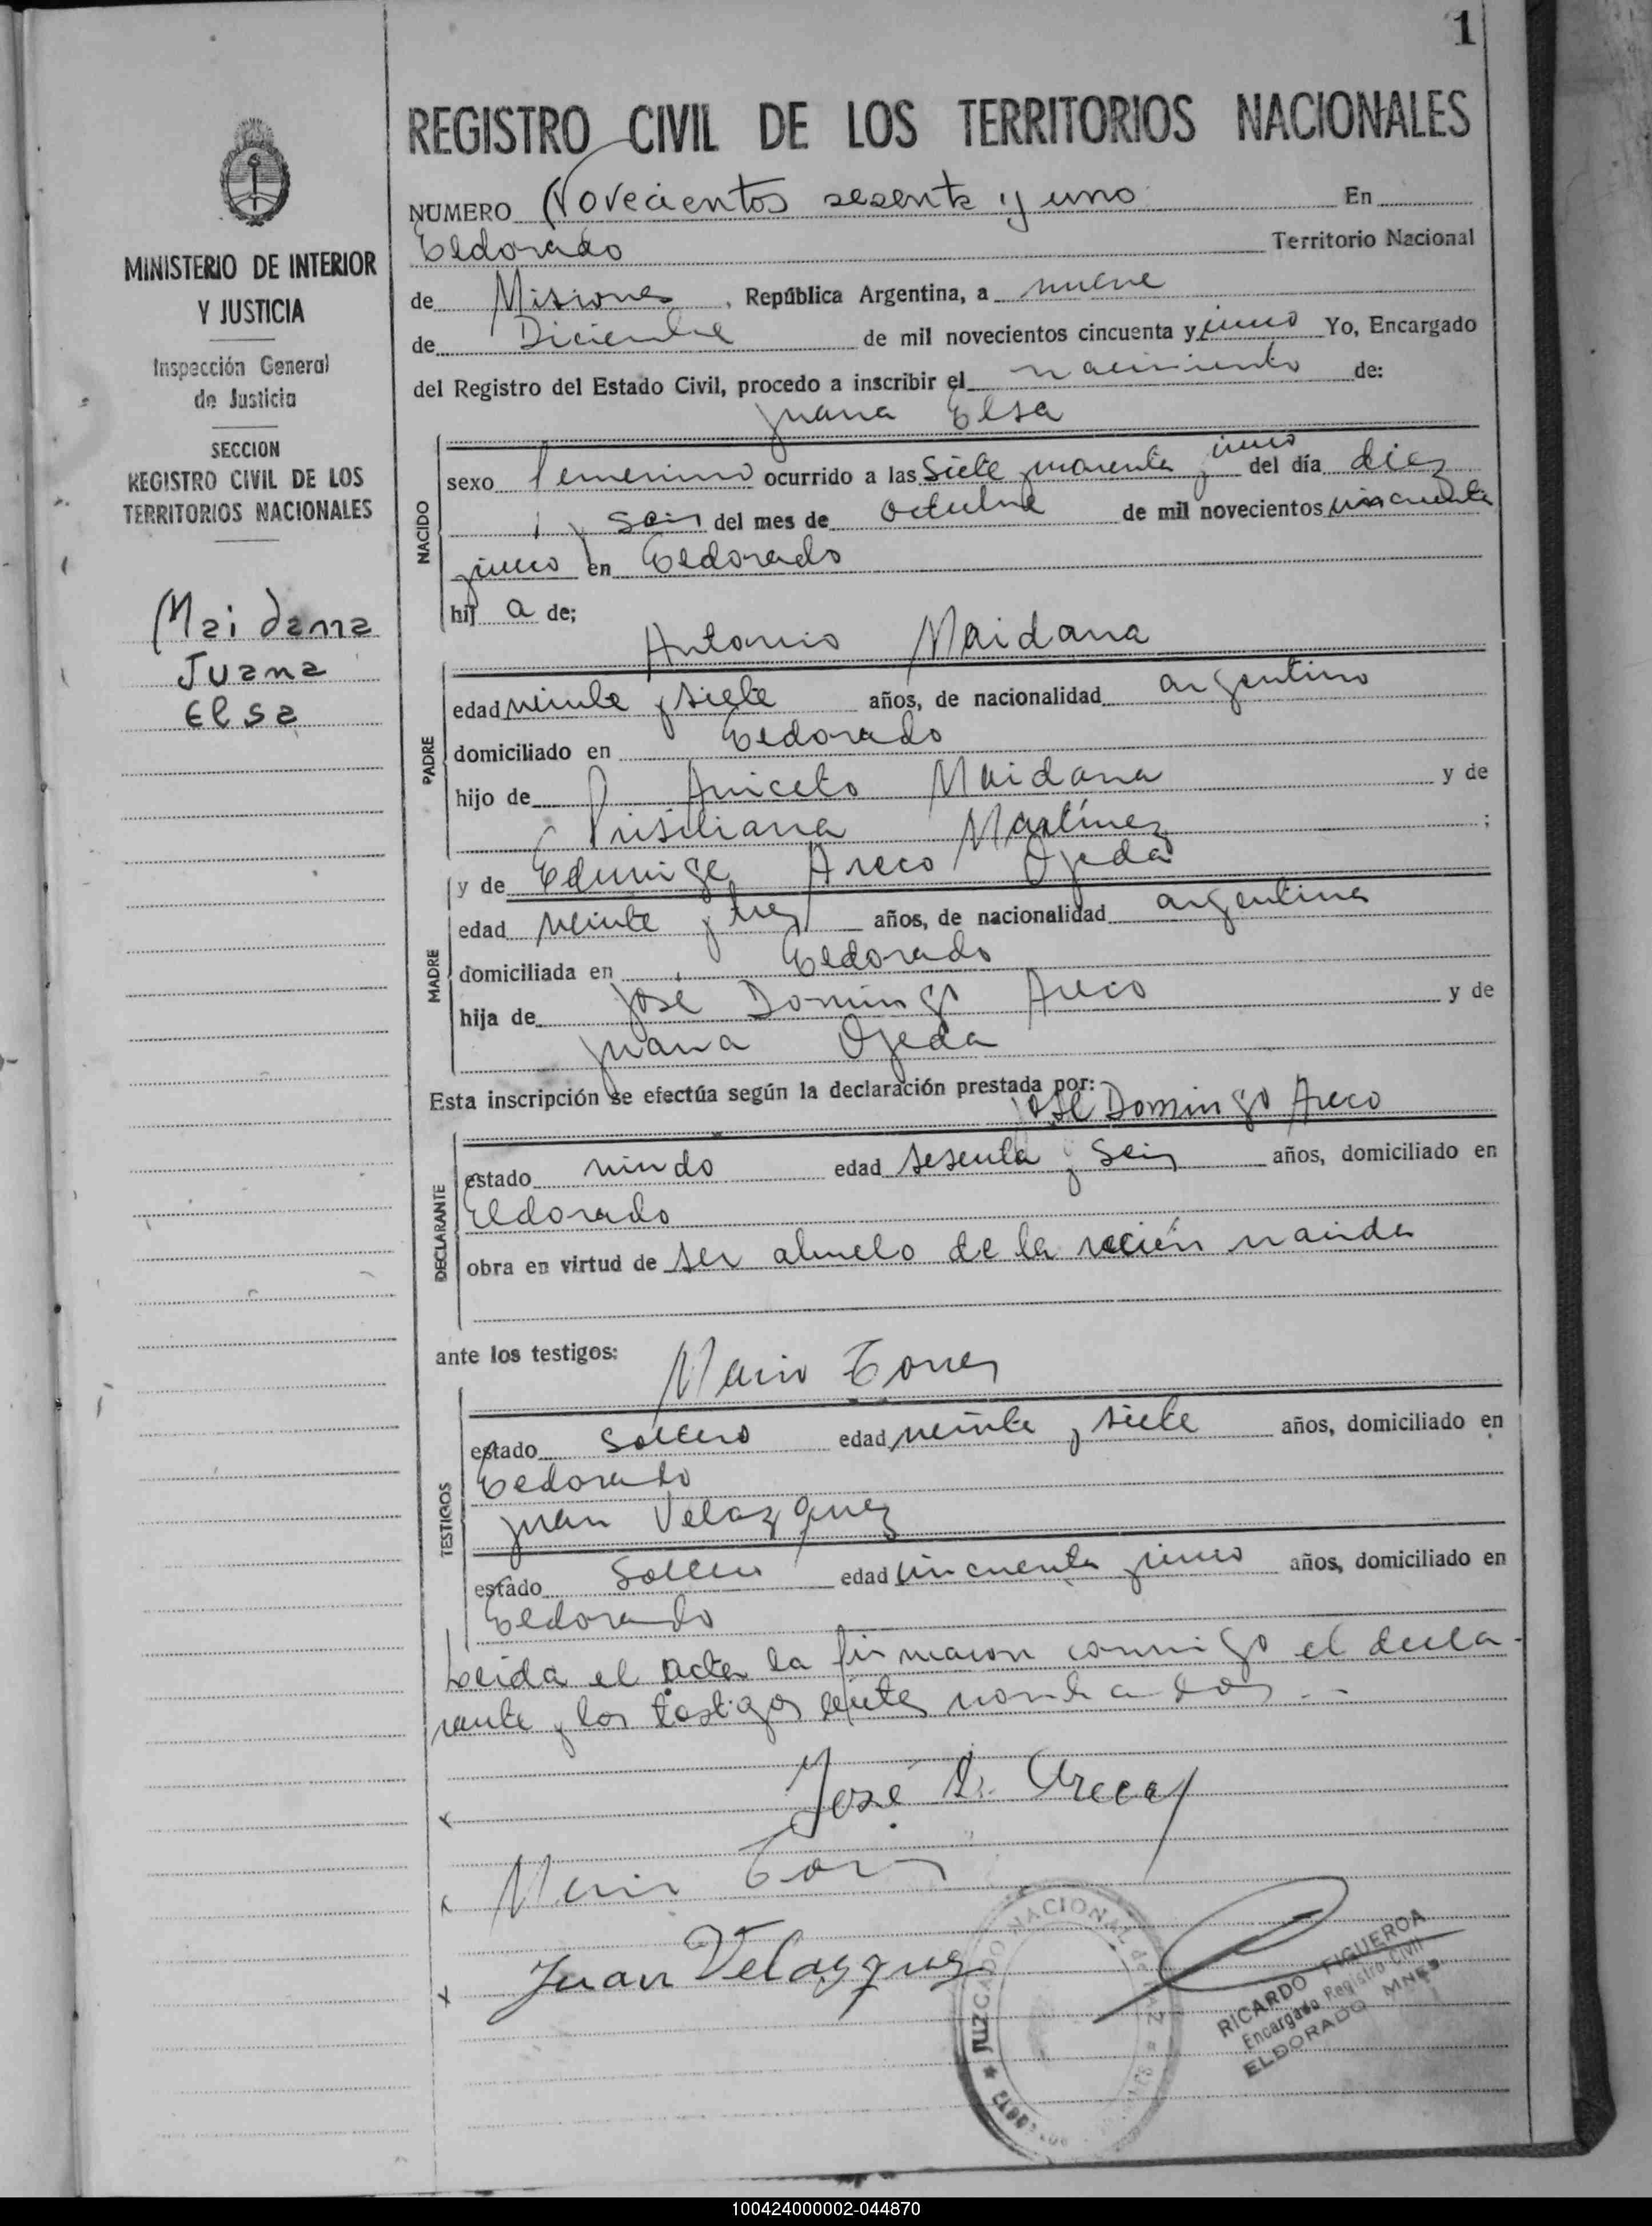 1
REGISTRO CIVIL DE LOS TERRITORIOS NACIONALES
NUMERO Novecientos sesenta y uno En
Eldorado Territorio Nacional
de Misiones, República Argentina, a nueve
de Diciembre de mil novecientos cincuenta y cinco Yo, Encargado
del Registro del Estado Civil, procedo a inscribir el nacimiento de:
Juana Elsa
NACIDO
sexo femenino ocurrido a las siete y cuarenta y cinco del día diez
y seis del mes de octubre de mil novecientos cincuenta
y cinco en Eldorado
hij a de;
Antonio Maidana
PADRE
edad veinte y siete años, de nacionalidad argentino
domiciliado en Eldorado
hijo de Aniceto Maidana y de
Martínez;
y de Eduvige Areco Ojeda
MADRE
edad veinte y tres años, de nacionalidad argentina
domiciliada en Eldorado
hija de José Domingo Areco y de
Juana Ojeda
Esta inscripción se efectúa según la declaración prestada por:
José Domingo Areco
DECLARANTE
estado viudo edad sesenta y seis años, domiciliado en
Eldorado
obra en virtud de ser abuelo de la recién nacida
ante los testigos:
Mario Torres
TESTIGOS
estado soltero edad veinte y siete años, domiciliado en
Eldorado
Juan Velazquez
estado soltero edad cincuenta y cinco años, domiciliado en
Eldorado
Leida el acta la firmaron conmigo el decla-
rante y los testigos antes nombrados
x José D. Areco
x Mario Torres
x Juan Velazquez
JUZGADO NACIONAL DE PAZ
RICARDO FIGUEROA
Encargado Registro Civil
ELDORADO MNES.
MINISTERIO DE INTERIOR
Y JUSTICIA
Inspección General
de Justicia
SECCION
REGISTRO CIVIL DE LOS
TERRITORIOS NACIONALES
Maidana
Juana
Elsa
100424000002-044870